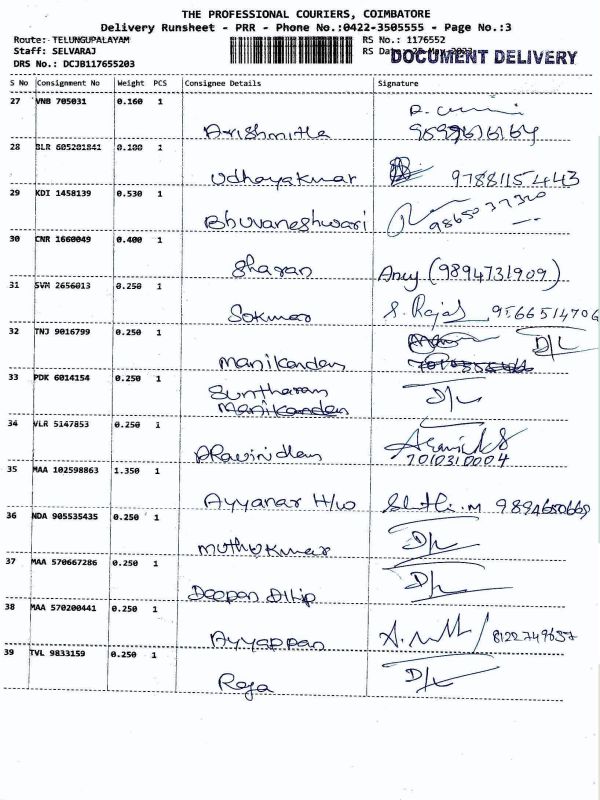 THE PROFESSIONAL COURIERS, COIMBATORE
Delivery Runsheet - PRR - Phone No.:0422-3505555 - Page No.:3
Route: TELUNGUPALAYAM RS No.: 1176552
Staff: SELVARAJ RS Date: DOCUMENT DELIVERY
DRS No.: DCJB117655203
S No Consignment No Weight PCS Consignee Details Signature
27 VNB 705031 0.160 1
Arishmitha
28 BLR 605201841 0.100 1
Udhayakumar 9788115443
29 KDI 1458139 0.530 1
Bhuvaneshwari 9865037320
30 CNR 1660049 0.400 1
Sharan Ancy (9894731909)
31 SVM 2656013 0.250 1
Sokumar S. Rajas 9566514706
32 TNJ 9016799 0.250 1
Manikandan D/L
33 PDK 6014154 0.250 1
Suntharam D/L
Manikandan
34 VLR 5147853 0.250 1
Aravindan
7010310004
35 MAA 102598863 1.350 1
Ayyanar H/W 9894650669
36 NDA 905535435 0.250 1
Muthukumar D/L
37 MAA 570667286 0.250 1
Deepan Dilip D/L
38 MAA 570200441 0.250 1
Ayyappan 8122749657
39 TVL 9833159 0.250 1
Raja D/L